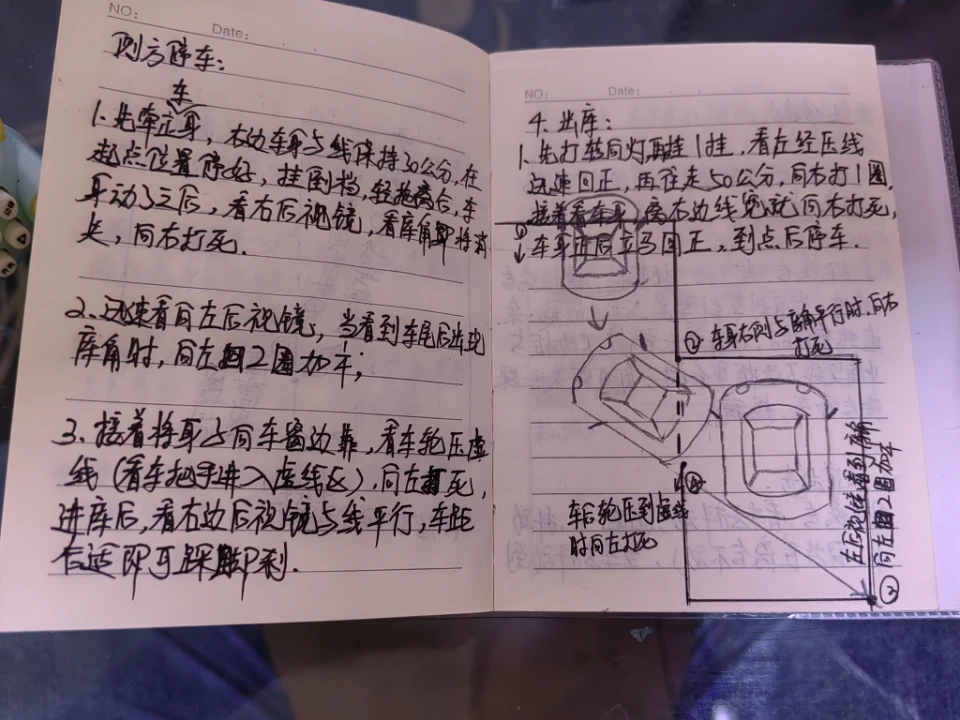 NO:
Date:
侧方停车:
车
1.先牵正身,右边车身与线保持30公分,在
起点位置停好,挂倒档,轻抬离合,车
身动了之后,看右后视镜,看库角即将消
失,向右打死.
2、迅速看向左后视镜,当看到车尾后出现
库角时,向左回2圈加半;
3、接着将身子向车窗边靠,看车轮压虚
线(看车把手进入虚线区),向左打死,
进库后,看右边后视镜与线平行,车距
合适即可踩即刹.
NO:
Date:
4.出库:
1.先打转向灯再挂1挂,看左经压线
迅速回正,再往走50公分,向右打1圈,
接着看车身离右边线宽就向右打死,
车身正后立马回正。到点后停车.
①
② 车身右侧与库角平行时,向右
打死
④
车后轮压到虚线
时向左打死
左后视镜看到库角
向左回2圈加半
③